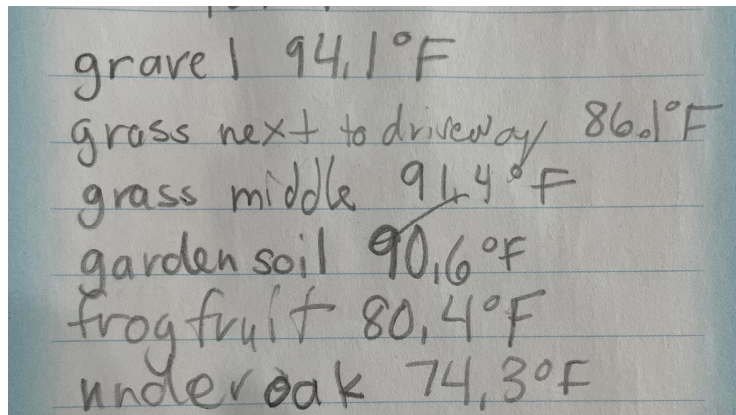 gravel 94.1°F
grass next to driveway 86.1°F
grass middle 91.4°F
garden soil 90.6°F
frogfruit 80.4°F
under oak 74.3°F